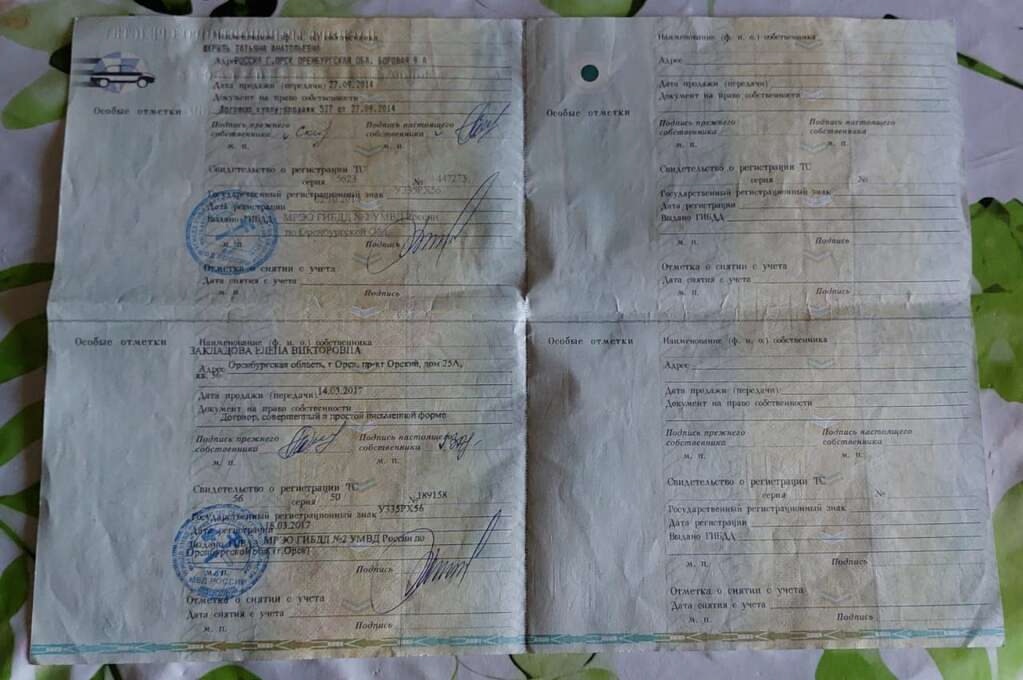 Особые отметки
Наименование (ф. и. о.) собственника
ТАТЬЯНА АНАТОЛЬЕВНА
Адрес РОССИЯ Г.ОРСК ОРЕНБУРГСКАЯ ОБЛ. БОРОВАЯ 9 А
Дата продажи (передачи) 27.09.2014
Документ на право собственности
Договор купли-продажи 527 от 27.09.2014
Подпись прежнего собственника
Подпись настоящего собственника
м. п.
Свидетельство о регистрации ТС
серия 5623 № 447273
Государственный регистрационный знак У335РХ56
Дата регистрации
Выдано ГИБДД МРЭО ГИБДД №2 УМВД России
по Оренбургской Обл.
м. п. Подпись
Отметка о снятии с учета
Дата снятия с учета
м. п. Подпись
Особые отметки
Наименование (ф. и. о.) собственника
Адрес
Дата продажи (передачи)
Документ на право собственности
Подпись прежнего собственника
Подпись настоящего собственника
м. п. м. п.
Свидетельство о регистрации ТС
серия №
Государственный регистрационный знак
Дата регистрации
Выдано ГИБДД
м. п. Подпись
Отметка о снятии с учета
Дата снятия с учета
м. п. Подпись
Особые отметки
Наименование (ф. и. о.) собственника
ЗАКЛАДОВА ЕЛЕНА ВИКТОРОВНА
Адрес Оренбургская область, г Орск, пр-кт Орский, дом 25А,
кв. 56
Дата продажи (передачи) 14.03.2017
Документ на право собственности
Договор, совершенный в простой письменной форме
Подпись прежнего собственника
Подпись настоящего собственника
м. п. м. п.
Свидетельство о регистрации ТС
56 серия 50 № 189158
Государственный регистрационный знак У335РХ56
Дата регистрации 18.03.2017
Выдано ГИБДД МРЭО ГИБДД №2 УМВД России по
Оренбургской обл. (г.Орск)
м. п. Подпись
МВД РОССИИ
Отметка о снятии с учета
Дата снятия с учета
м. п. Подпись
Особые отметки
Наименование (ф. и. о.) собственника
Адрес
Дата продажи (передачи)
Документ на право собственности
Подпись прежнего собственника
Подпись настоящего собственника
м. п. м. п.
Свидетельство о регистрации ТС
серия №
Государственный регистрационный знак
Дата регистрации
Выдано ГИБДД
м. п. Подпись
Отметка о снятии с учета
Дата снятия с учета
м. п. Подпись